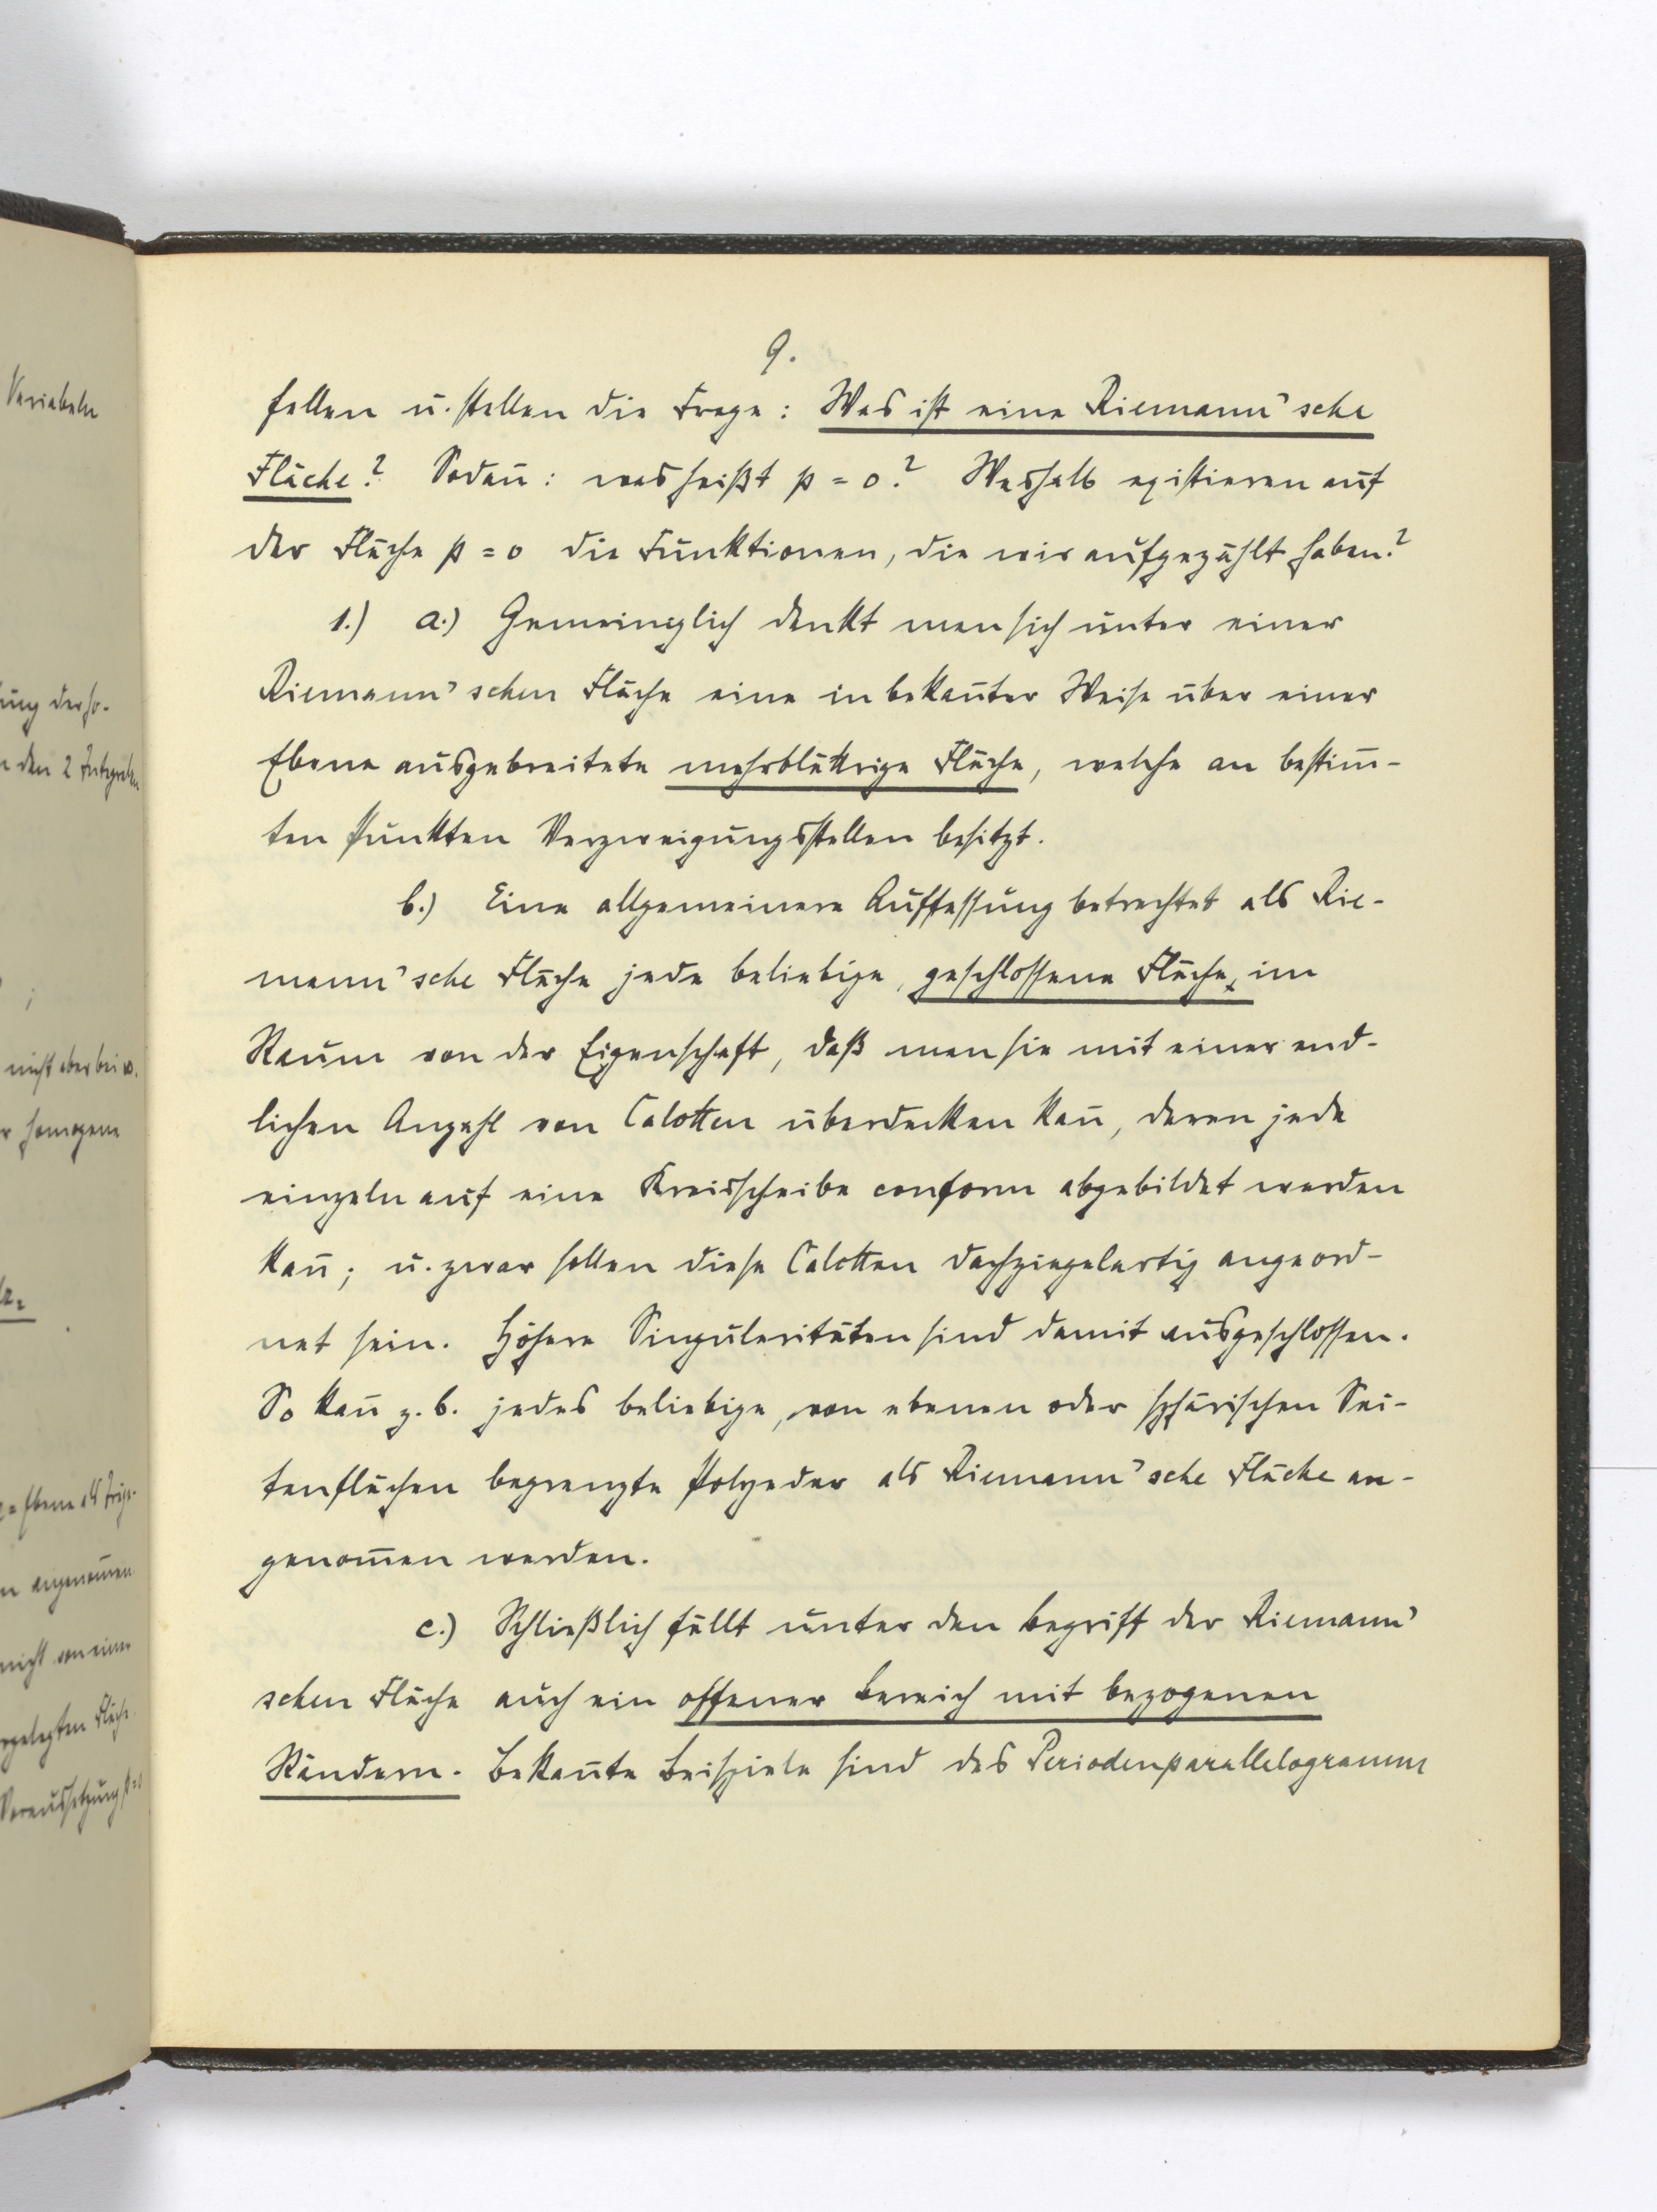 Variabeln
ung der so-
den 2 Integralen
;
nicht aber bei w.
homogene
= Ebene als
angenom̅en
nicht von einer
Fläche
Voraussetzung p=0
9.
fallen u. stellen die Frage: Was ist eine Riemann'sche
Fläche? Sodan̅: was heißt p = 0? Weshalb existieren auf
der Fläche p = 0 die Funktionen, die wir aufgezählt haben?
1.) a.) Gemeiniglich denkt man sich unter einer
Riemann'schen Fläche eine in bekan̅ter Weise über einer
Ebene ausgebreitete mehrblättrige Fläche, welche an bestim̅-
ten Punkten Verzweigungsstellen besitzt.
b.) Eine allgemeinere Auffassung betrachtet als Rie-
mann'sche Fläche jede beliebige, geschlossene Fläche, im
Raum von der Eigenschaft, daß man sie mit einer end-
lichen Anzahl von Calotten überdecken kan̅, deren jede
einzeln auf eine Kreisscheibe conform abgebildet werden
kan̅; u. zwar sollen diese Calotten dachziegelartig angeord-
net sein. Höhere Singularitäten sind damit ausgeschlossen.
So kan̅ z. b. jedes beliebige, von ebenen oder sphärischen Sei-
tenflächen begrenzte Polyeder als Riemann'sche Fläche an-
genom̅en werden.
c.) Schließlich fällt unter den Begriff der Riemann'
schen Fläche auch ein offener Bereich mit bezogenen
Rändern. Bekan̅te Beispiele sind das Periodenparallelogramm